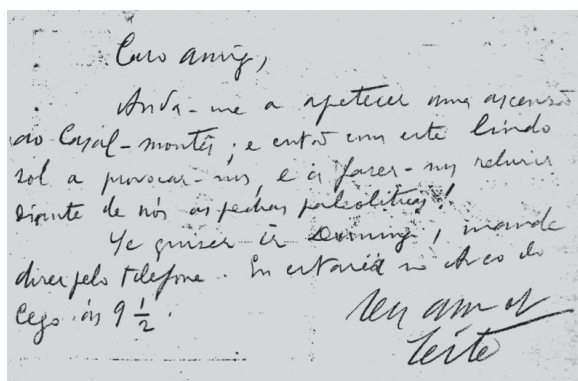 Caro amig,
Anda-me a apetecer uma ascensão
ao Casal-montês; e então com este lindo
sol a provocar-nos, e a fazer-nos reluzir
diante de nós as pedras paleoliticas!
Se quiser ir Doming, mande
dizer pelo telefone. Eu estarei no Arco do
Cego ás 9 1/2.
Seu am.º
Leite